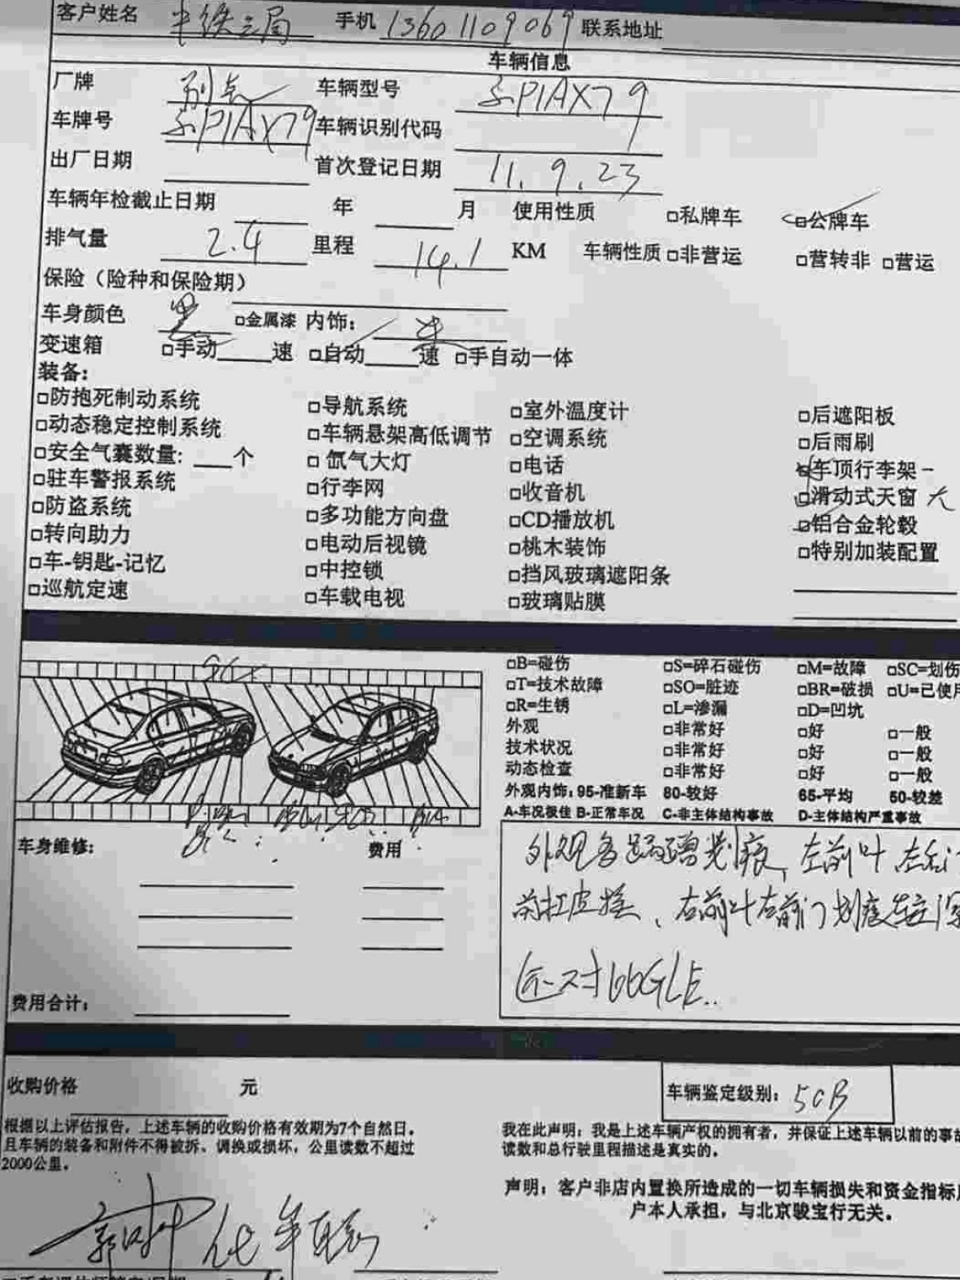 客户姓名 中铁三局 手机 13601109069 联系地址
车辆信息
厂牌 别克 车辆型号 京P1AX79
车牌号 京P1AX79 车辆识别代码
出厂日期 首次登记日期 11.9.23
车辆年检截止日期 年 月 使用性质 □私牌车 □公牌车
排气量 2.4 里程 14.1 KM 车辆性质 □非营运 □营转非 □营运
保险（险种和保险期）
车身颜色 黑 □金属漆 内饰：
变速箱 □手动____速 □自动____速 □手自动一体
装备:
□防抱死制动系统 □导航系统 □室外温度计 □后遮阳板
□动态稳定控制系统 □车辆悬架高低调节 □空调系统 □后雨刷
□安全气囊数量: ___个 □氙气大灯 □电话 □车顶行李架-
□驻车警报系统 □行李网 □收音机 □滑动式天窗 大
□防盗系统 □多功能方向盘 □CD播放机 □铝合金轮毂
□转向助力 □电动后视镜 □桃木装饰 □特别加装配置
□车-钥匙-记忆 □中控锁 □挡风玻璃遮阳条
□巡航定速 □车载电视 □玻璃贴膜
□B=碰伤 □S=碎石碰伤 □M=故障 □SC=划伤
□T=技术故障 □SO=脏迹 □BR=破损 □U=已使用
□R=生锈 □L=渗漏 □D=凹坑
外观 □非常好 □好 □一般
技术状况 □非常好 □好 □一般
动态检查 □非常好 □好 □一般
外观内饰：95-准新车 80-较好 65-平均 50-较差
A-车况极佳 B-正常车况 C-非主体结构事故 D-主体结构严重事故
车身维修： 费用
外观多 划痕，左前叶 左后门
前杠皮 、右前叶右前门划痕
费用合计：
收购价格 元
车辆鉴定级别： 50B
根据以上评估报告，上述车辆的收购价格有效期为7个自然日，
且车辆的装备和附件不得被拆、调换或损坏，公里读数不超过
2000公里。
我在此声明：我是上述车辆产权的拥有者，并保证上述车辆以前的事故
读数和总行驶里程描述是真实的。
声明：客户非店内置换所造成的一切车辆损失和资金指标
户本人承担，与北京骏宝行无关。